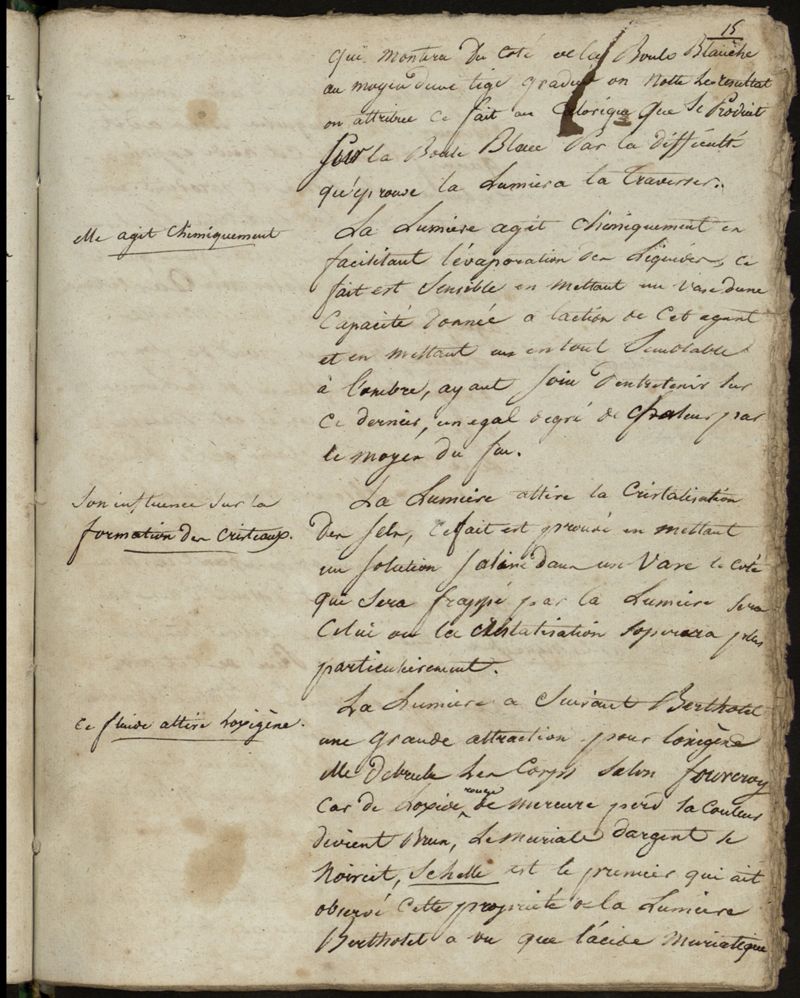 15
qui montera du coté de la Boule Blanche
au moyen d'une tige graduée on notte le resultat
on attribue ce fait au Calorique que se Produit
sur la Boule Blanc Par la difficulté
qu'éprouve la Lumiere a la traverser.
elle agit Chimiquement
La Lumiere agit Chimiquement en
facilitant l'évaporation des Liquides, ce
fait est Sensible en mettant un vase d'une
Capacité donnée a l'action de Cet agent
et en mettant un en tout Semblable
à l'ombre, ayant soin d'entretenir sur
ce dernier, un egal degré de chaleur par
le moyen du feu.
Son influence sur la
formation des Cristeaux.
La Lumiere attire la Cristalisation
des sels, Ce fait est prouvé en mettant
un solution saline dans un Vase le coté
qui sera frappé par la Lumiere sera
Celui ou la Cristalisation s'operera plus
particulierement.
Ce fluide attire l'oxigène.
La Lumiere a Suivant Berthotel
une grande attraction pour l'oxigène
elle debrule les Corps selon fourcroy
Car de l'oxide rouge de mercure perd sa couleur
devient Brun, Le muriate d'argent se
Noircit, Schelle est le premier qui ait
observé Cette propriété de la Lumiere
Berthotel a vu que l'acide Muriatique